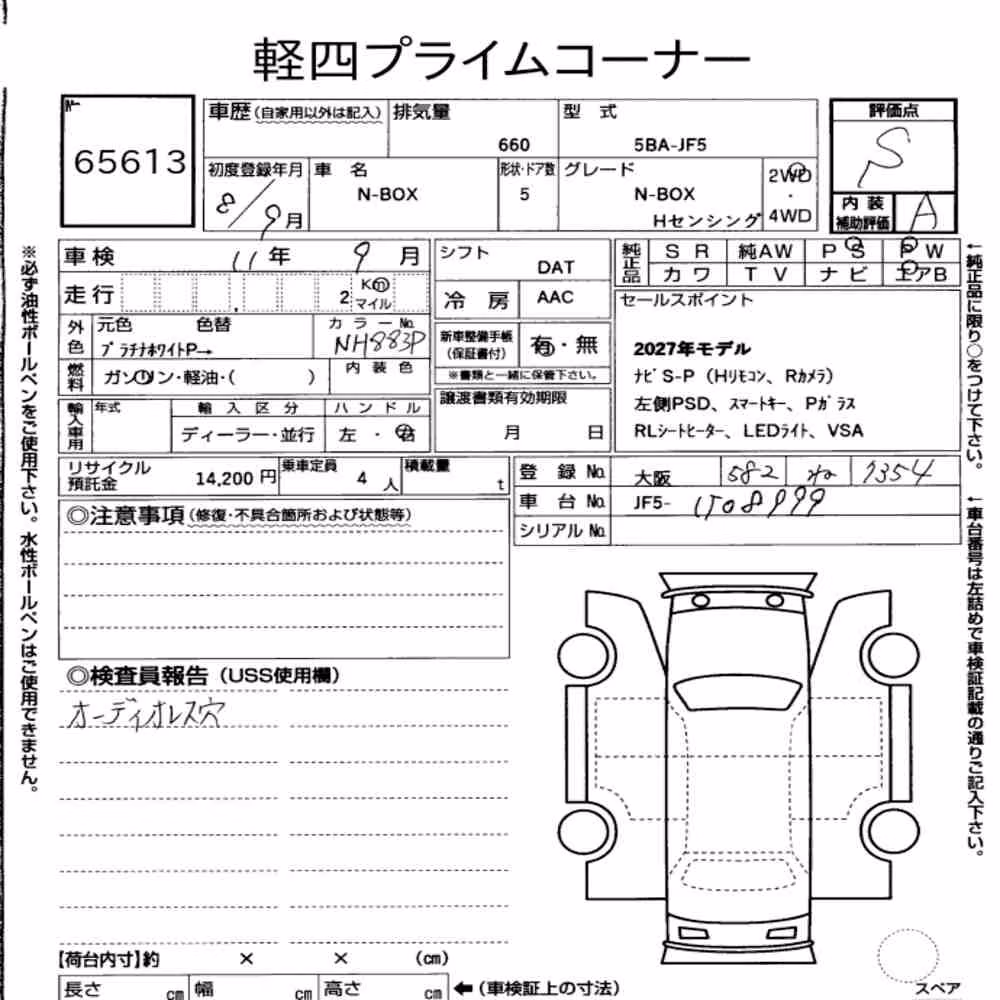 軽四プライムコーナー
№
65613
車歴(自家用以外は記入)
排気量
660
型 式
5BA-JF5
評価点
S
初度登録年月
8/9月
車 名
N-BOX
形状・ドア数
5
グレード
N-BOX
Hセンシング
2WD
・
4WD
内 装
補助評価
A
車検
11年 9月
シフト
DAT
純正品
S R 純AW P S P W
カ ワ T V ナ ビ エアB
走行
2
Km
マイル
冷 房
AAC
セールスポイント
2027年モデル
ナビS-P (Hリモコン、Rカメラ)
左側PSD、スマートキー、Pガラス
RLシートヒーター、LEDライト、VSA
外色
元色 色替
プラチナホワイトP→
カラー№
NH883P
新車整備手帳
(保証書付)
有・無
※書類と一緒に保管下さい。
燃料
ガソリン・軽油・( )
内 装 色
譲渡書類有効期限
月 日
輸入車用
年式
輸 入 区 分
ディーラー・並行
ハ ン ド ル
左 ・ 右
リサイクル
預託金
14,200 円
乗車定員
4 人
積載量
t
登 録 №
大阪 582 ね 7354
車 台 №
JF5-
シリアル №
◎注意事項(修復・不具合箇所および状態等)
◎検査員報告(USS使用欄)
オーディオレス穴
【荷台内寸】約 × × (cm)
長さ cm 幅 cm 高さ cm ←(車検証上の寸法)
スペア
※必ず油性ボールペンをご使用下さい。水性ボールペンはご使用できません。
←純正品に限り○をつけて下さい。
←車台番号は左詰めで車検証記載の通りご記入下さい。